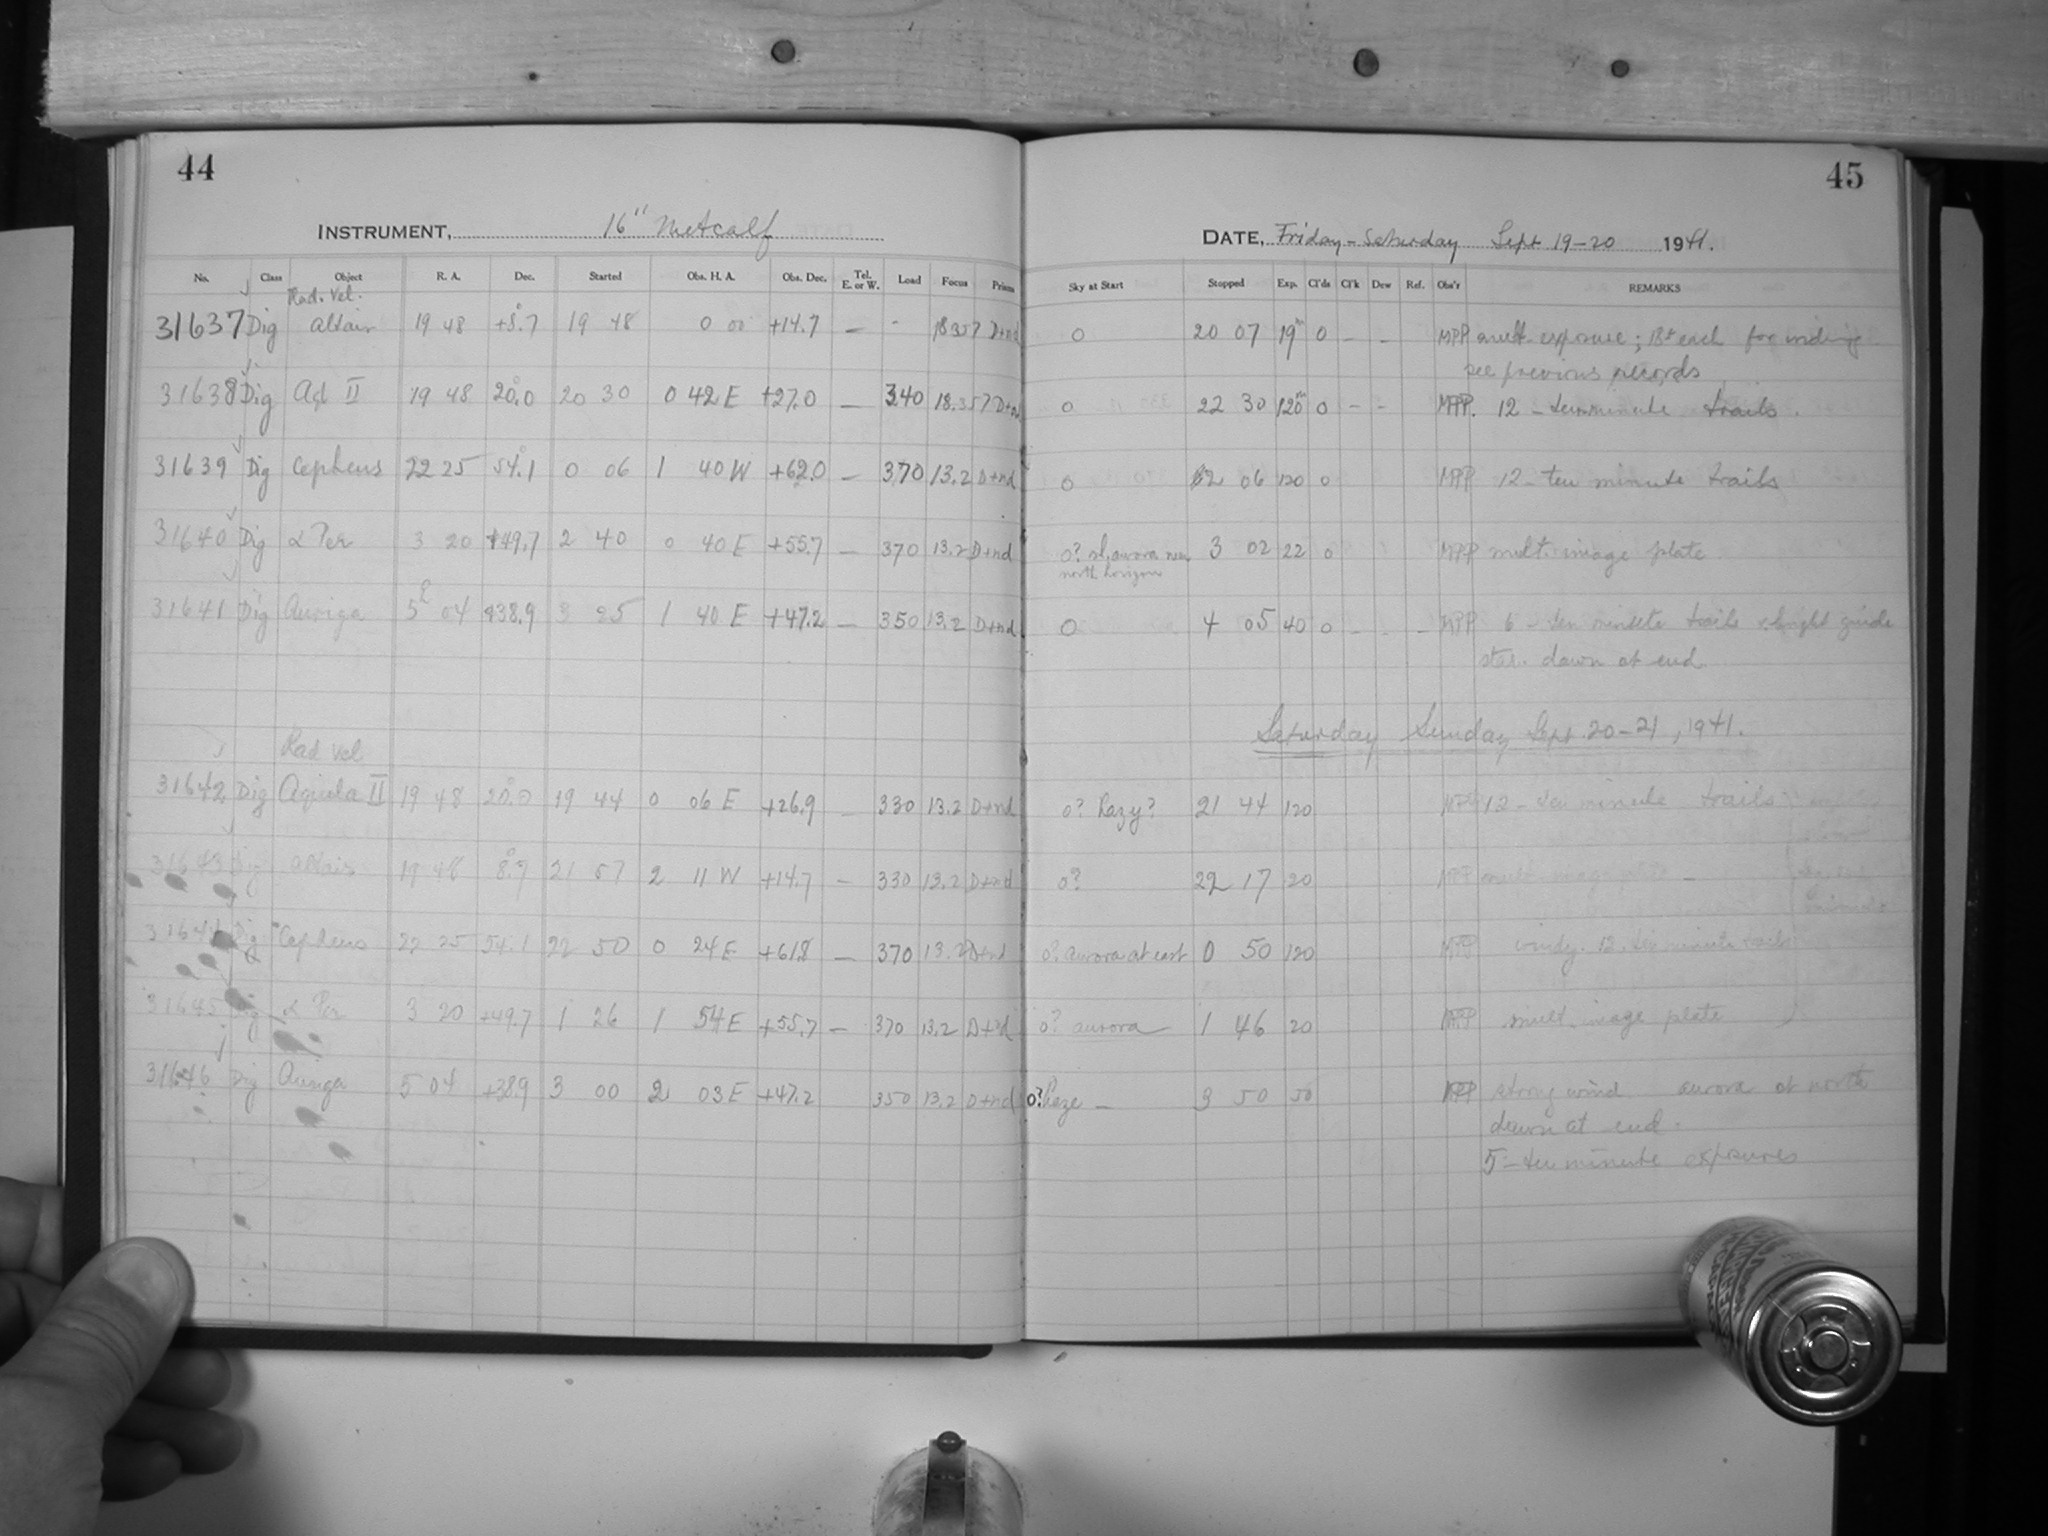 44
45
INSTRUMENT, 16" Metcalf
DATE, Friday-Saturday Sept 19-20 1941.
No. Class Object R. A. Dec. Started Obs. H. A. Obs. Dec. Tel. E. or W. Load Focus Prism Sky at Start Stopped Exp. Cl'ds Cl'k Dew Ref. Obs'r REMARKS
Rad. Vel.
31637 Dig Altair 19 48 +8.7 19 48 0 00 +14.7 — - 18.357 D+nd 0 20 07 19m 0 - - MPP mult. exposure; 18s each for
see previous records
31638 Dig Aql II 19 48 20.0 20 30 0 42 E +27.0 — 340 18.357 D+nd 0 22 30 120m 0 - - MPP. 12 - ten minute trails.
31639 Dig Cepheus 22 25 54.1 0 06 1 40 W +62.0 — 370 13.2 D+nd 0 2 06 120 0 MPP 12 - ten minute trails
31640 Dig α Per 3 20 +49.7 2 40 0 40 E +55.7 — 370 13.2 D+nd 0? sl. aurora near 3 02 22 0 MPP mult. image plate.
north horizon
31641 Dig Auriga 5 04 +38.9 3 25 1 40 E +47.2 — 350 13.2 D+nd 0 4 05 40 0 - - - MPP 6 - ten minute trails bright guide
star. dawn at end
Saturday Sunday Sept. 20-21, 1941.
Rad vel
31642 Dig Aquila II 19 48 20.0 19 44 0 06 E +26.9 — 330 13.2 D+nd 0? hazy? 21 44 120 MPP 12 - ten minute trails
31643 Dig Altair 19 48 8.7 21 57 2 11 W +14.7 — 330 13.2 D+nd 0? 22 17 20 MPP mult. image plate -
31644 Dig Cepheus 22 25 54.1 22 50 0 24 E +61.8 — 370 13.2 D+nd 0? aurora at east 0 50 120 MPP windy. 12 ten minute trails
31645 Dig α Per 3 20 +49.7 1 26 1 54 E +55.7 — 370 13.2 D+nd 0? aurora 1 46 20 MPP mult. image plate
31646 Dig Auriga 5 04 +38.9 3 00 2 03 E +47.2 350 13.2 D+nd 0? haze — 3 50 50 MPP strong wind aurora at north
dawn at end.
5 - ten minute exposures